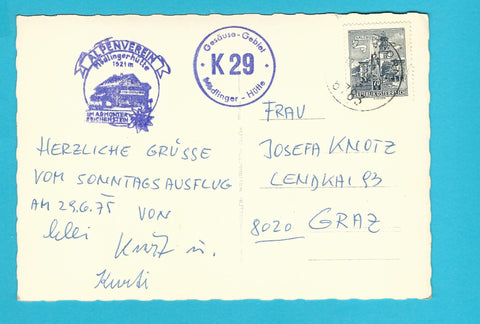 ALPENVEREIN
Mödlingerhütte
1521 m
IM ADMONTER
REICHENSTEIN
Gesäuse-Gebiet
K 29
Mödlinger - Hütte
HERZLICHE GRÜSSE
VOM SONNTAGSAUSFLUG
AM 29.6.75 VON
Kurti
FRAU
JOSEFA KNOTZ
LENDKAI 93
8020 GRAZ